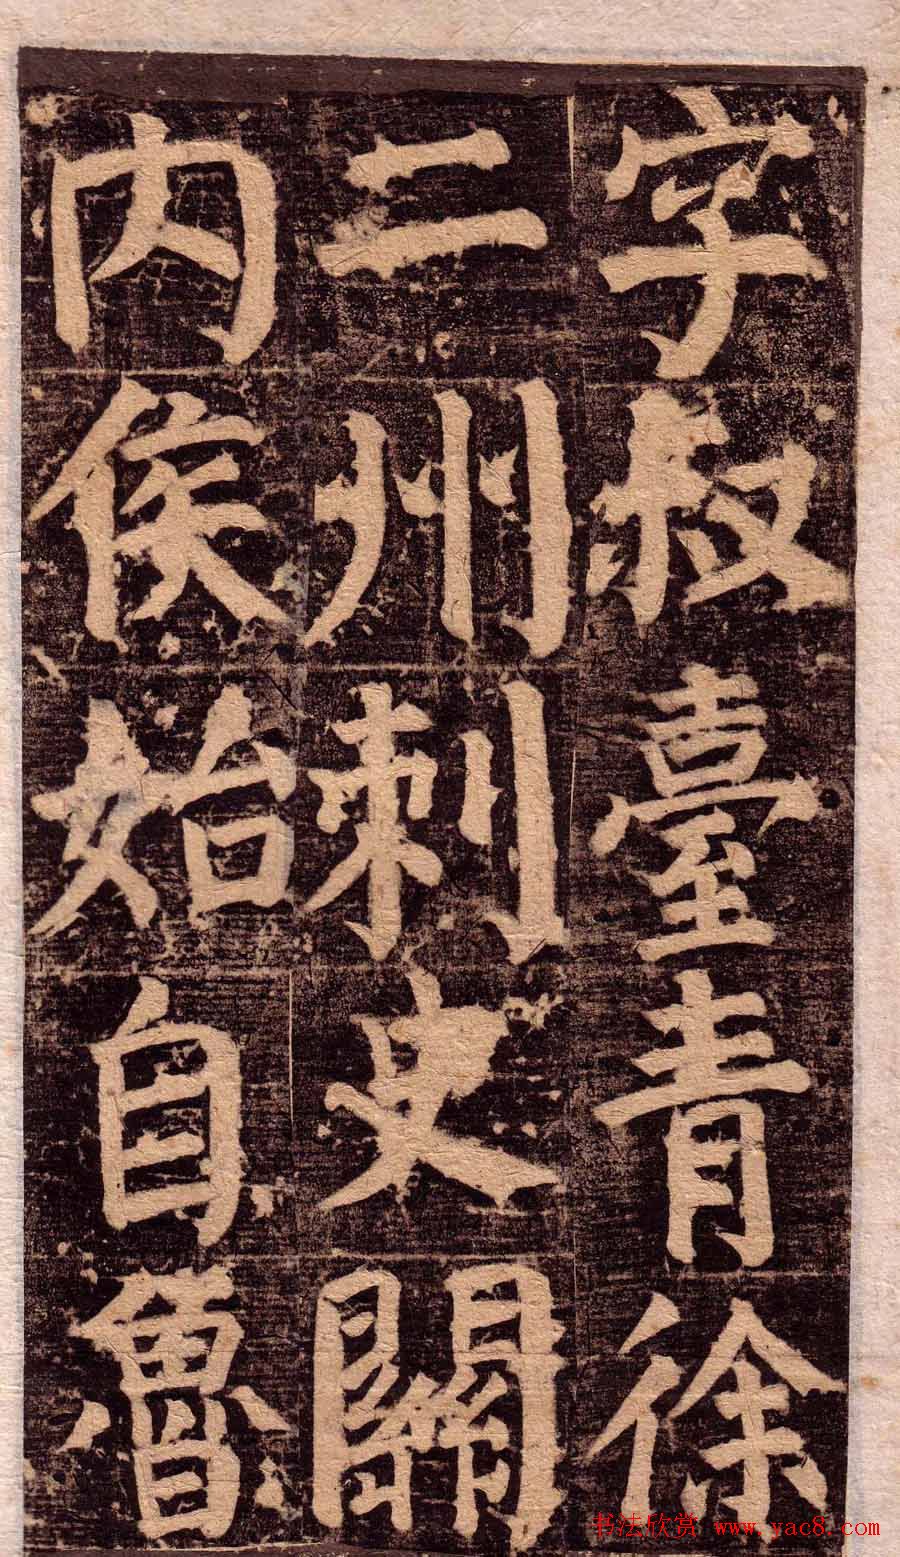 字叔臺青徐
二州刺史關
内侯始自魯
书法欣赏 www.yac8.com